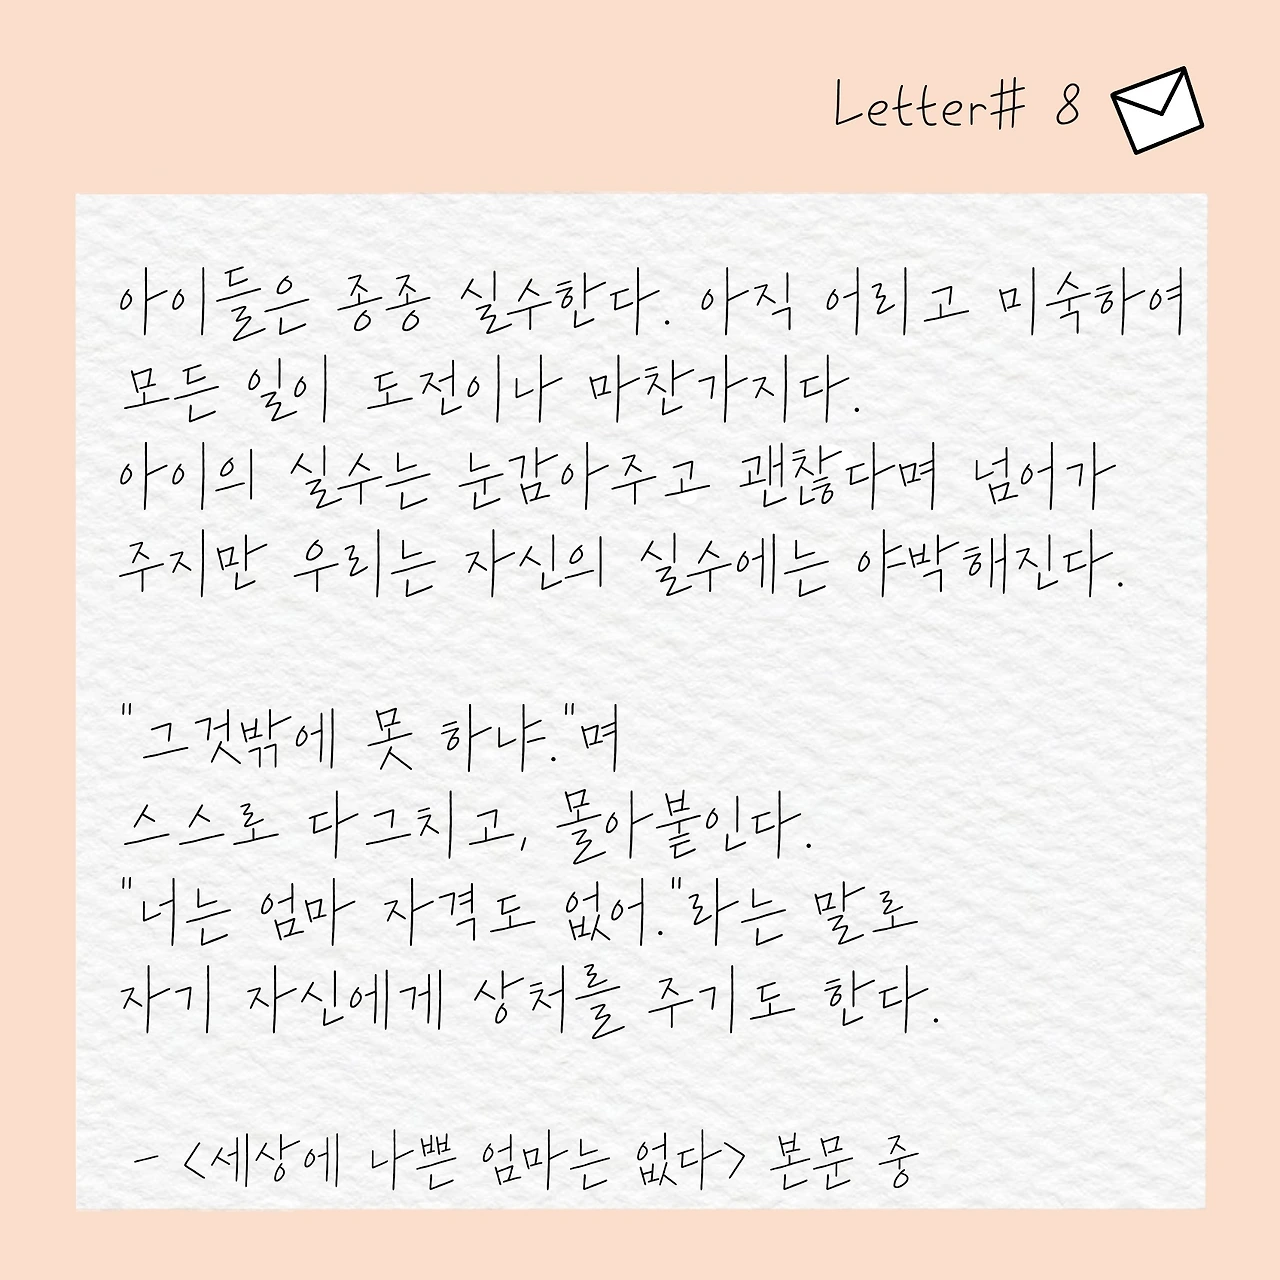 Letter# 8
아이들은 종종 실수한다. 아직 어리고 미숙하여
모든 일이 도전이나 마찬가지다.
아이의 실수는 눈감아주고 괜찮다며 넘어가
주지만 우리는 자신의 실수에는 야박해진다.
"그것밖에 못 하냐."며
스스로 다그치고, 몰아붙인다.
"너는 엄마 자격도 없어."라는 말로
자기 자신에게 상처를 주기도 한다.
- <세상에 나쁜 엄마는 없다> 본문 중